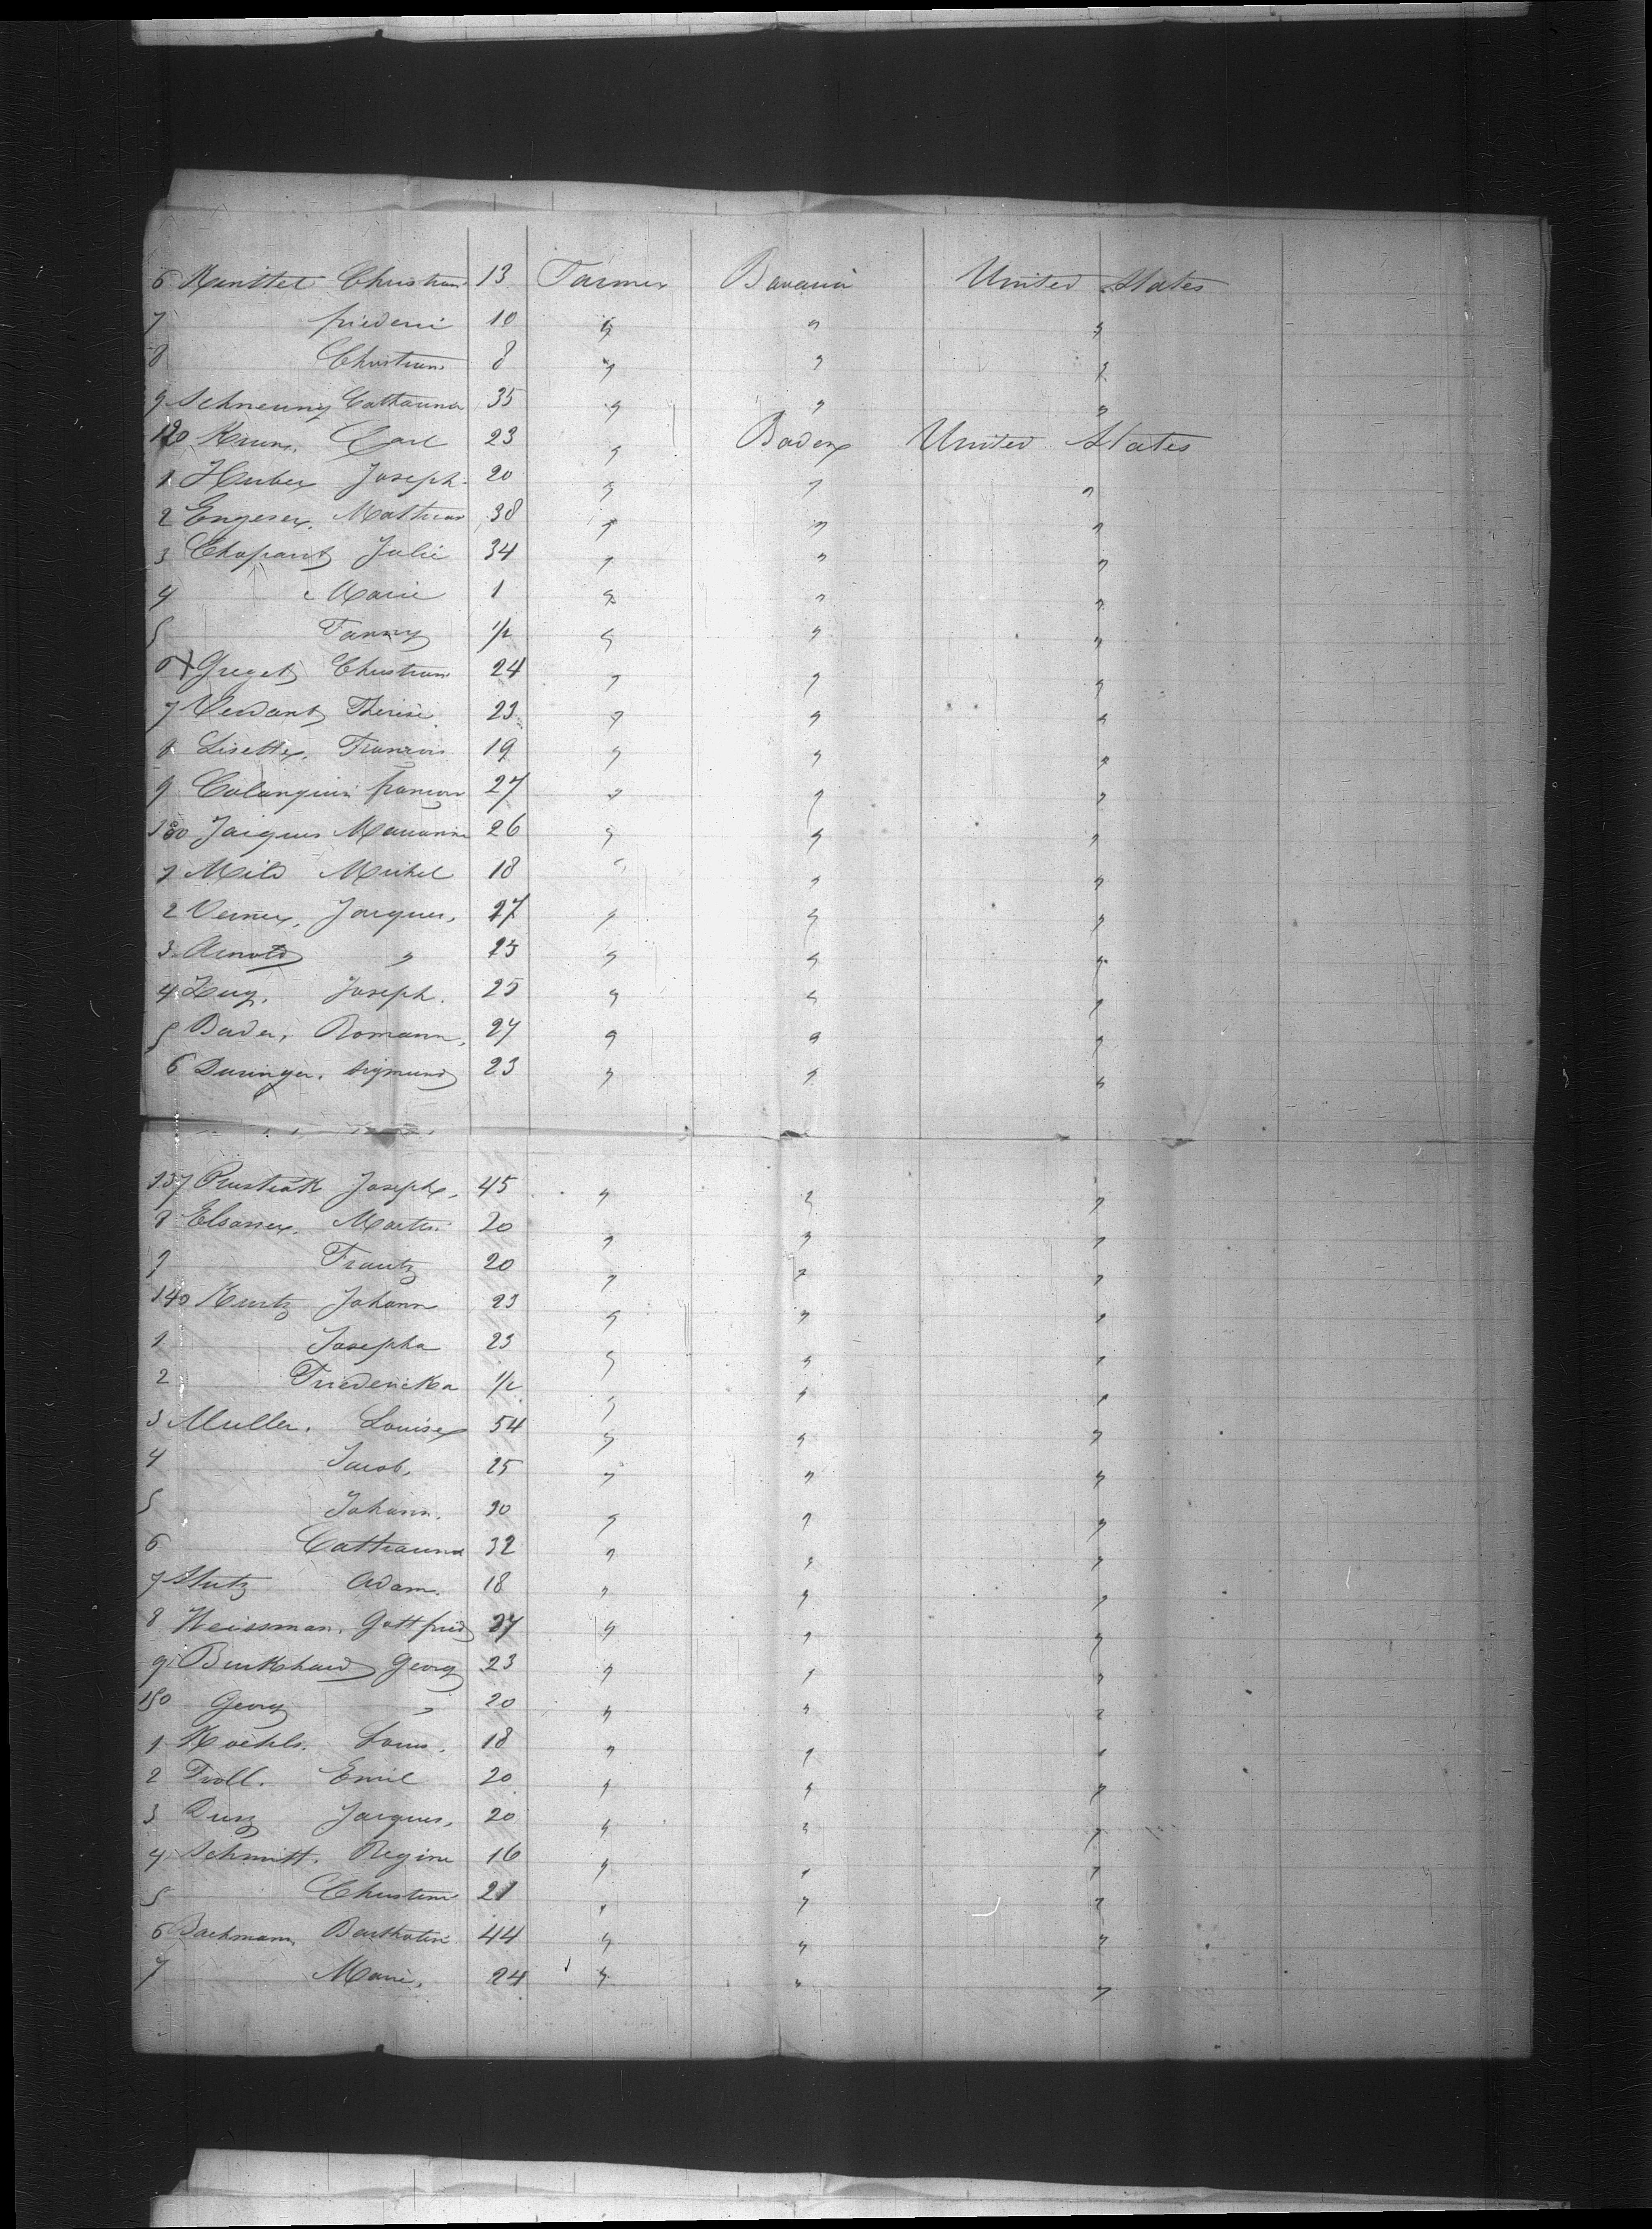 6 Kunttel Christian 13 Farmer Bavaria United States
7 friederic 10 " " "
8 Christian 8 " " "
9 Schneuny Catharina 35 " " "
120 Krum, Carl 23 " Baden United States
1 Huber Joseph. 20 " " "
2 Engeser, Mathias 38 " " "
3 Chopard Julie 34 " " "
4 Marie 1 " " "
5 Fanny 1/2 " " "
6 Greget Christian 24 " " "
7 Verdant Therese 23 " " "
8 Lisette, Francois 19 " " "
9 Calanquin francois 27 " " "
130 Jaiques Marianne 26 " " "
1 Mild Michel 18 " " "
2 Verner, Jacques, 27 " " "
3 Arnold " 23 " " "
4 Hug, Joseph. 25 " " "
5 Bader, Romann, 27 " " "
6 Duringer, Sigmund 23 " " "
137 Joseph, 45 " " "
8 Elsasser, Martin 20 " " "
9 Frantz 20 " " "
140 Kurtz Johann 23 " " "
1 Josepha 23 " " "
2 Friedericka 1/2 " " "
3 Muller, Louise 54 " " "
4 Jacob, 25 " " "
5 Johann. 30 " " "
6 Catharina 32 " " "
7 Stutz Adam. 18 " " "
8 Weissman, Gottfried 27 " " "
9 Burkhard Georg 23 " " "
150 Georg " 20 " " "
1 Koehls. Louis, 18 " " "
2 Troll. Emil 20 " " "
3 Dusz Jacques, 20 " " "
4 Schmitt, Regine 16 " " "
5 Christine 21 " " "
6 Bachmann, Bartholin 44 " " "
7 Marie, 24 " " "